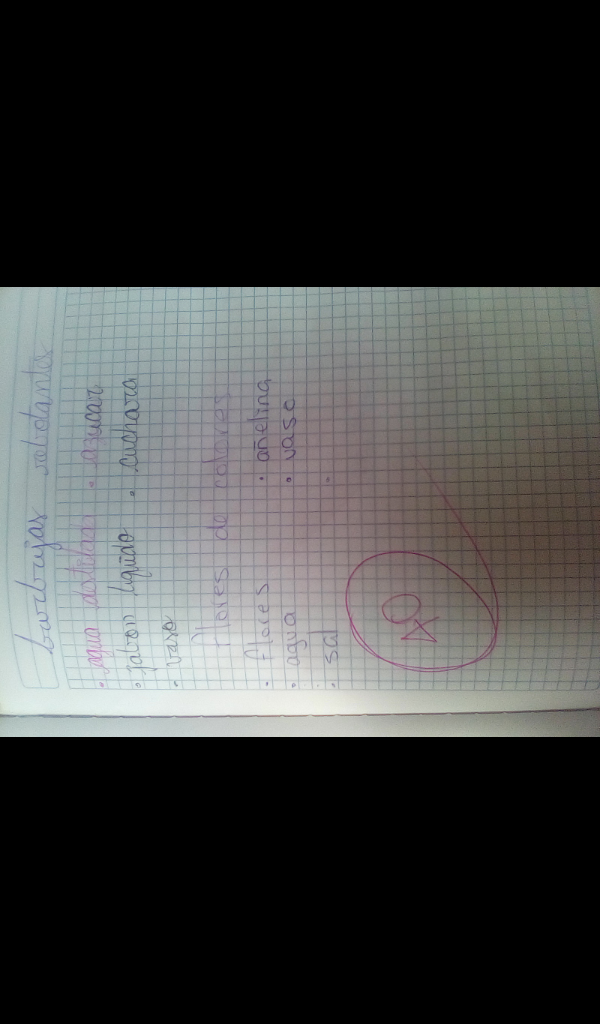 burbujas rebotantes
• agua destilada • azucar
• jabon liquido • cuchara
• vaso
flores de colores
• flores • añelina
• agua • vaso
• sal •
40